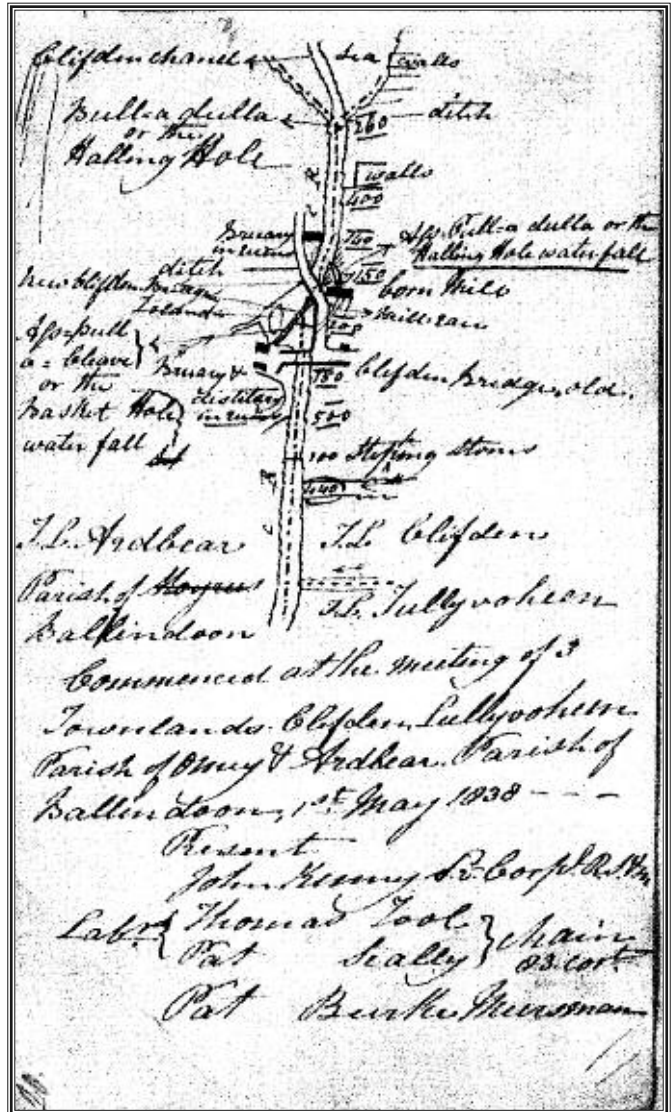 Clifden chanel
sea walls
Pull-a dulla
or the
Halling Hole
ditch
260
walls
400
Bruary
in ruins
740
Ass. Pull-a dulla or the
Halling Hole water fall
ditch
1150
New Clifden
Island
born Mill
Mill-race
Ass-pull
a-Cleave
or the
Basket Hole
water fall
Bruary &
distilary
in ruins
780
Clifden Bridge, old.
500
100 Steping stones
440
T.L. Ardbear
T.L. Clifden
Parish of
Ballindoon
T.L. Tullyvoheen
Commenced at the meeting of 3
Townlands. Clifden, Tullyvoheen
Parish of Omey & Ardbear. Parish of
Ballindoon, 1st May 1838 - - -
Present
John Kenney Corpl. R.S.&M
Labrs { Thomas Tool
Pat Seally } chain
Pat Burke Meersman